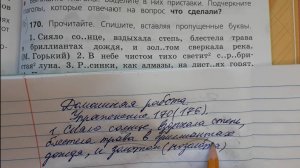 глаголы, которые отвечают на вопрос что сделали?
170. Прочитайте. Спишите, вставляя пропущенные буквы.
1. Сияло со..нце, вздыхала степь, блестела трава
в бриллиантах дождя, и зол..том сверкала река.
(М. Горький) 2. В небе чистом тихо светит с..р..б-
рист.. луна. 3. Р..синки, как алмазы, на лист..ях горят.
Домашняя работа
Упражнение 170 (176).
1. Сияло солнце, вздыхала степь,
блестела трава в бриллиантах
дождя, и золотом